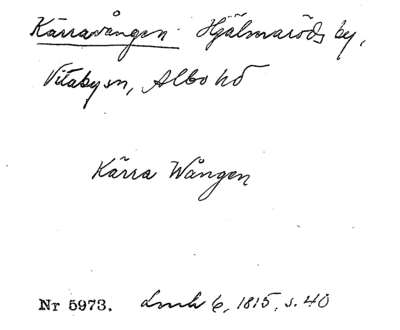 Kärravången Hjälmaröds by,
Vitaby sn, Albo hd
Kärra Wången
Nr 5973. Lmh 6, 1815, s. 40